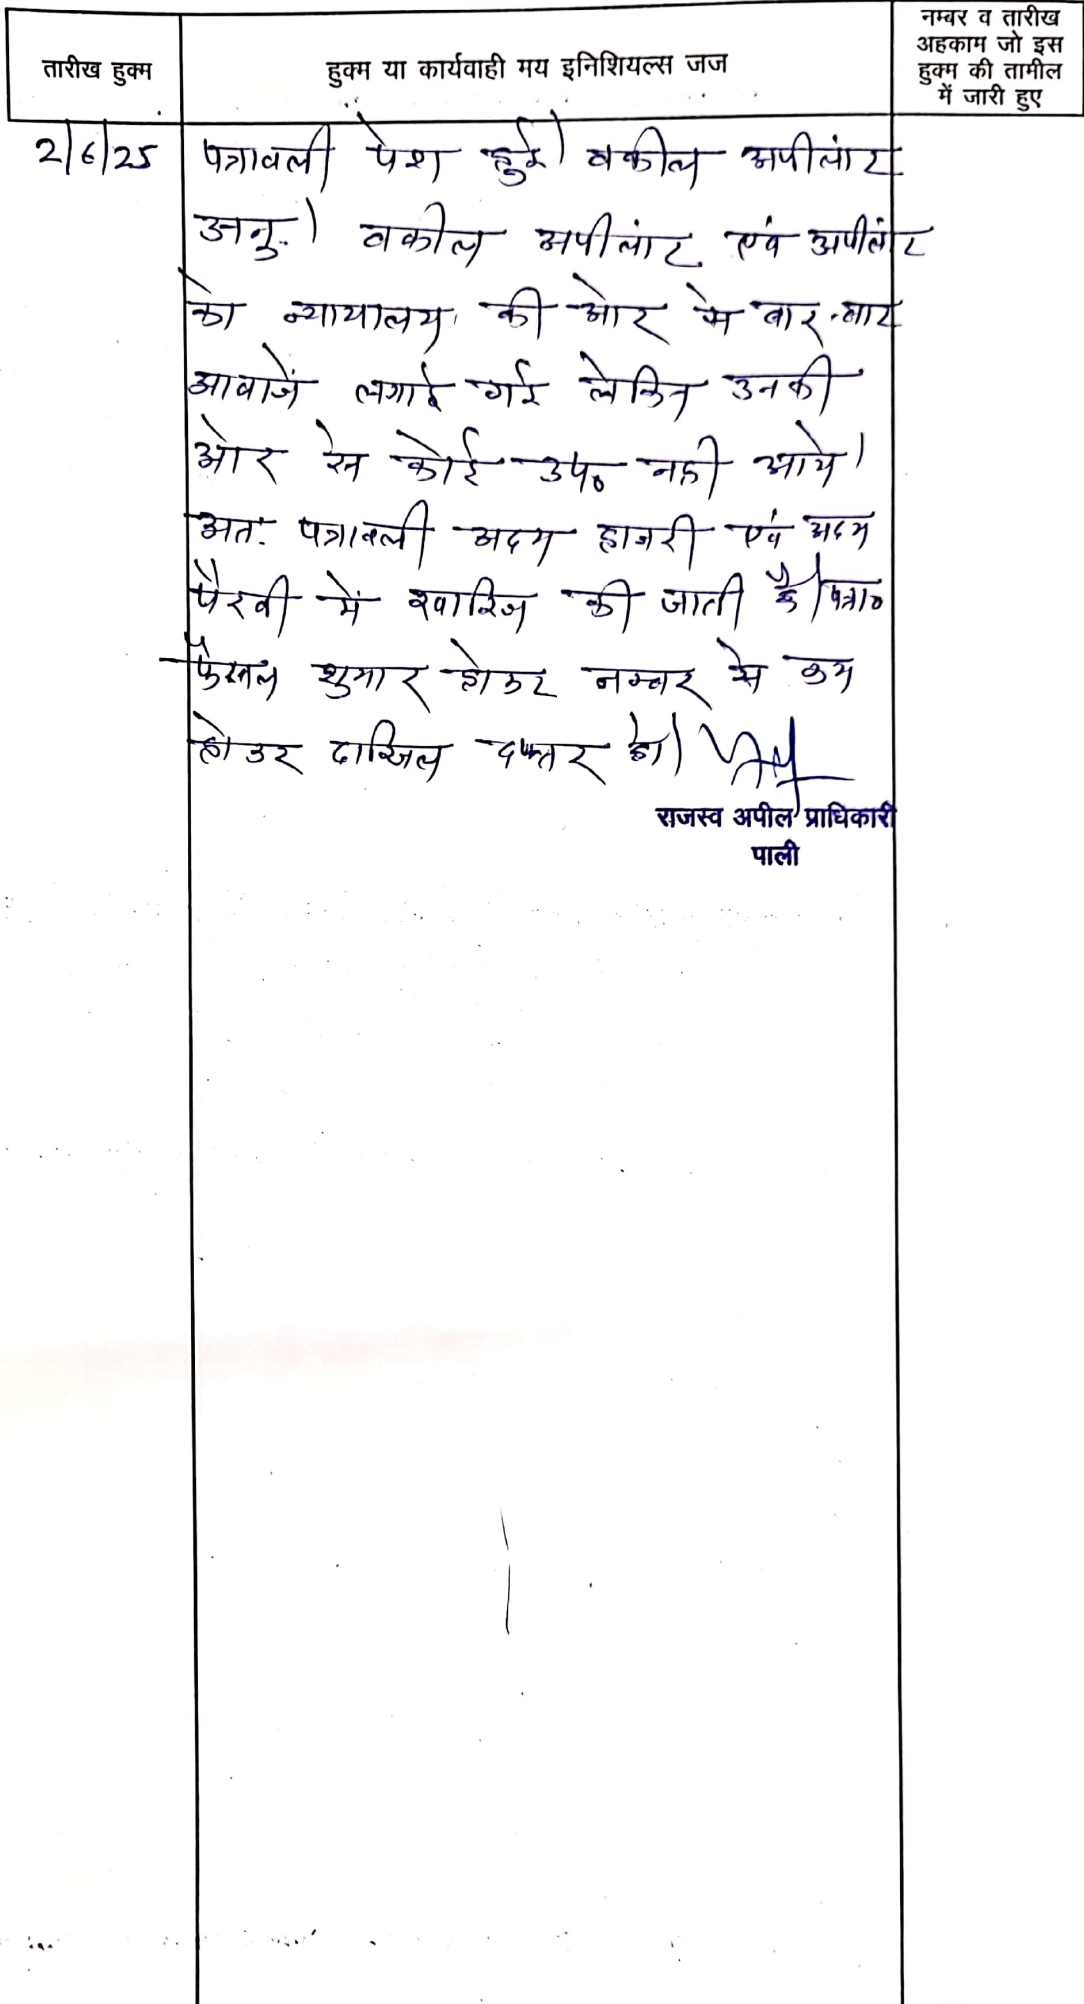 तारीख हुक्म
हुक्म या कार्यवाही मय इनिशियल्स जज
नम्बर व तारीख
अहकाम जो इस
हुक्म की तामील
में जारी हुए
2/6/25 पत्रावली पेश हुई। वकील अपीलांट
अनु.। वकील अपीलांट एवं अपीलांट
को न्यायालय की ओर से बार-बार
आवाजें लगाई गई लेकिन उनकी
ओर से कोई उप० नही आये।
अत: पत्रावली अदम हाजरी एवं अदम
पैरवी में खारिज की जाती है। पत्रा०
फैसल शुमार होकर नम्बर से कम
होकर दाखिल दफ्तर हो।
राजस्व अपील प्राधिकारी
पाली